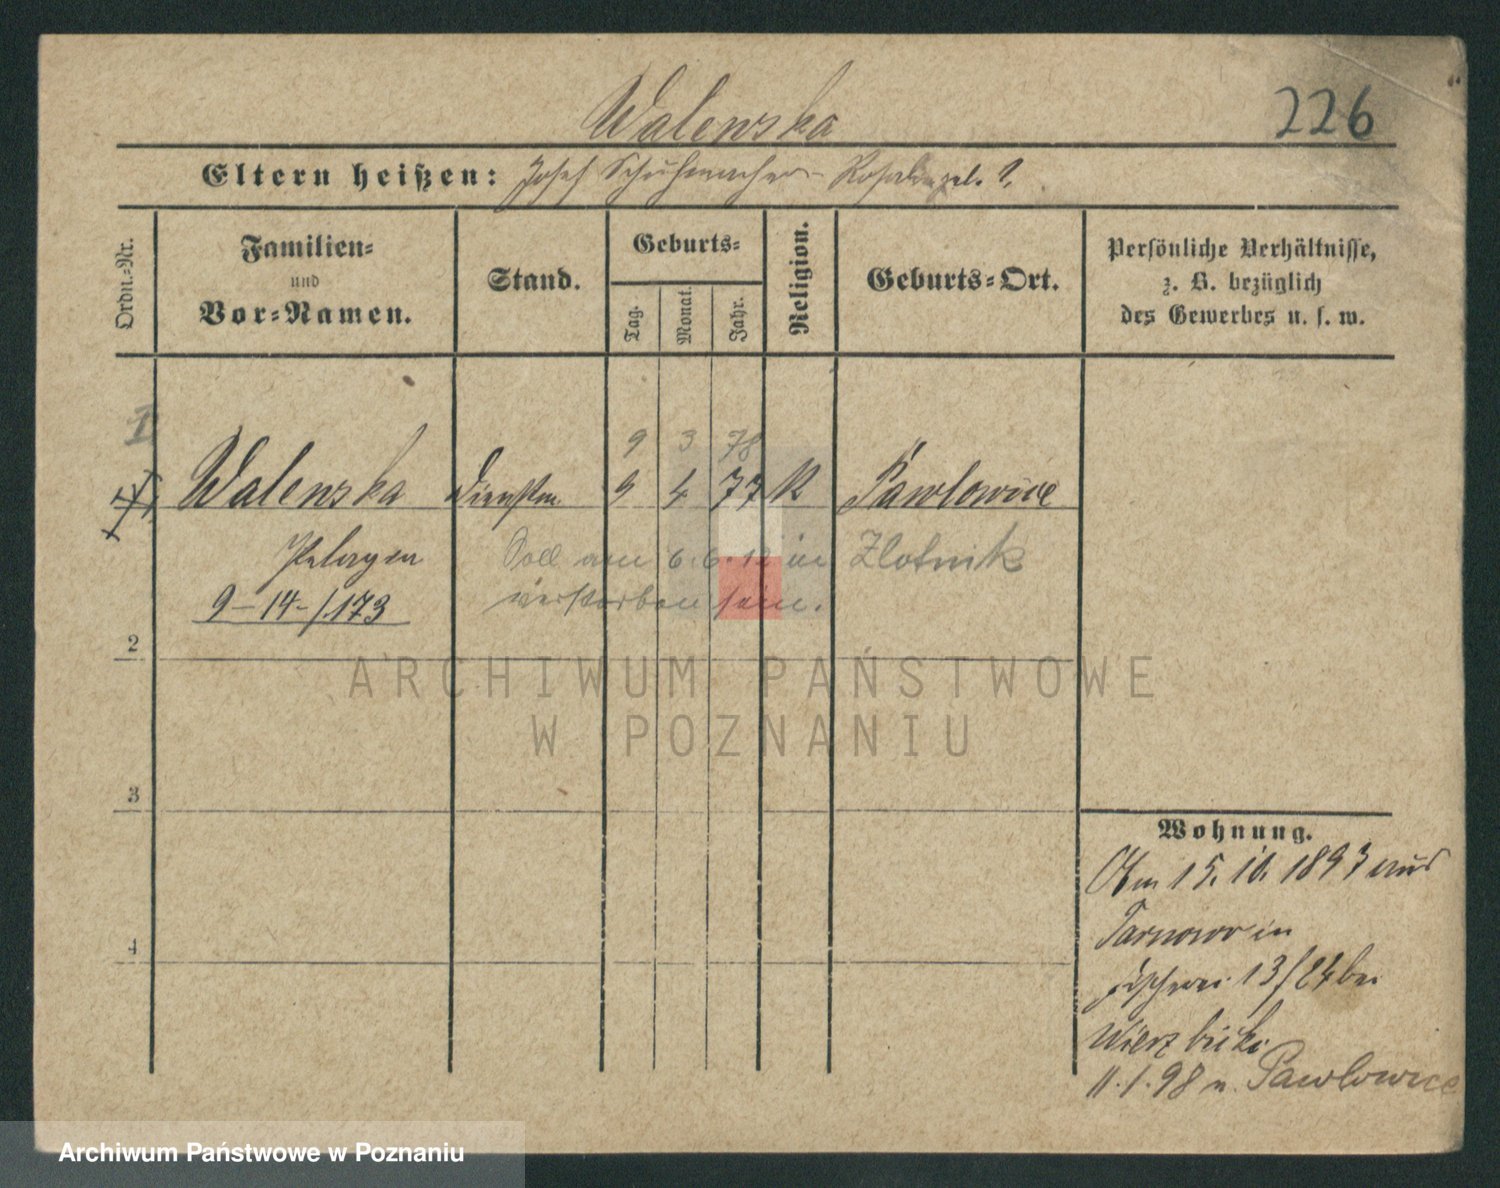 Walenska
226
Eltern heißen: Josef Schuhmacher - Rosalia gel. ?.
Ordn.-Nr.
Familien-
und
Vor-Namen.
Stand.
Geburts-
Tag.
Monat.
Jahr.
Religion.
Geburts-Ort.
Persönliche Verhältnisse,
z. B. bezüglich
des Gewerbes u. s. w.
1
9 3 78
Walenska 9 4 77 K Pawlowice
Pelagia
Soll am 6.6.12 in Zlotnik
verstorben sein.
9-14-/173
2
3
4
Wohnung.
Am 15. 10. 1897 aus
Tarnowo in
Fischerei 13/24 bei
Wierzbicki
11.1.98 n. Pawlowice
ARCHIWUM PAŃSTWOWE
W POZNANIU
Archiwum Państwowe w Poznaniu